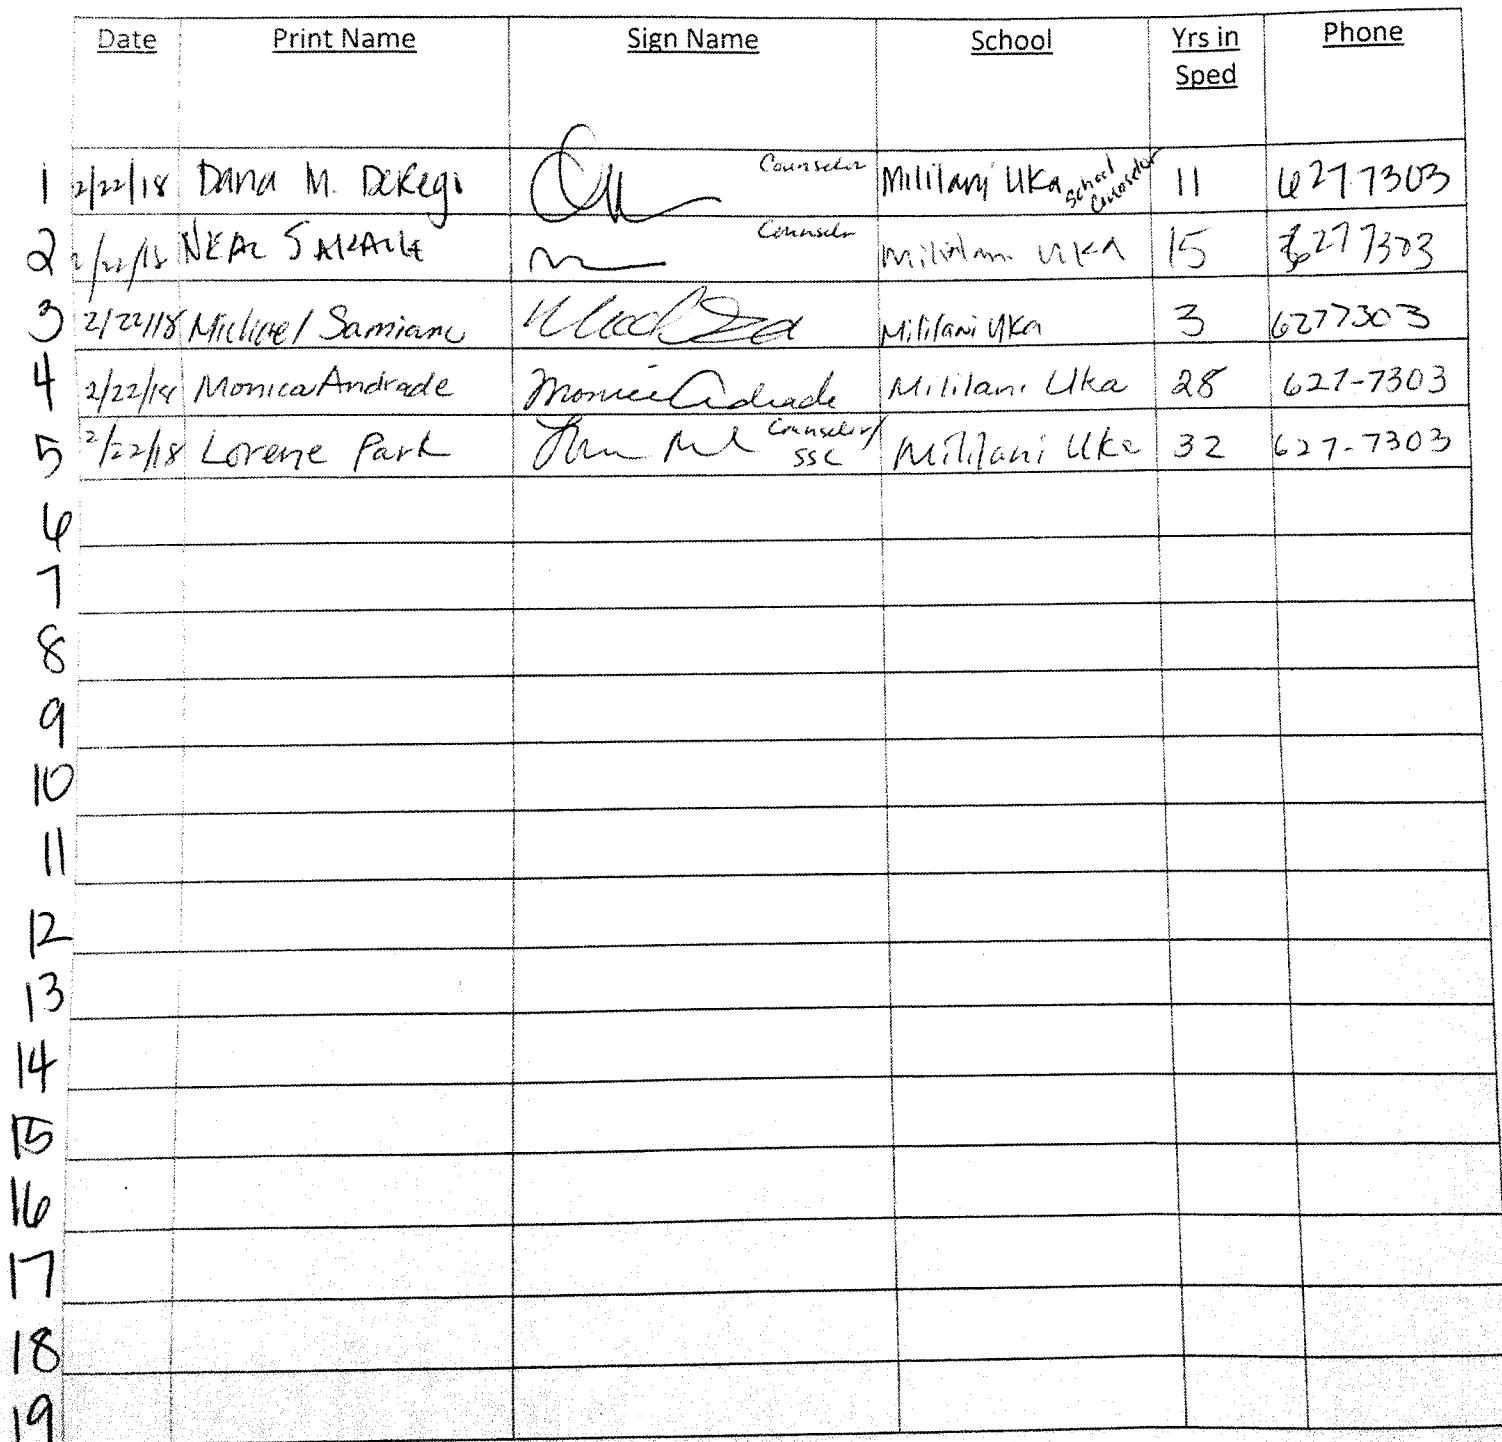 Date Print Name Sign Name School Yrs in Sped Phone
1 2/22/18 Dana M. DeRego Counselor Mililani Uka School Counselor 11 627.7303
2 2/22/18 NEAL Counselor Mililani Uka 15 6277303
3 2/22/18 Michael Samiano Mililani Uka 3 6277303
4 2/22/18 Monica Andrade Monica Andrade Mililani Uka 28 627-7303
5 2/22/18 Lorene Park Counselor/ SSC Mililani Uka 32 627-7303
6
7
8
9
10
11
12
13
14
15
16
17
18
19